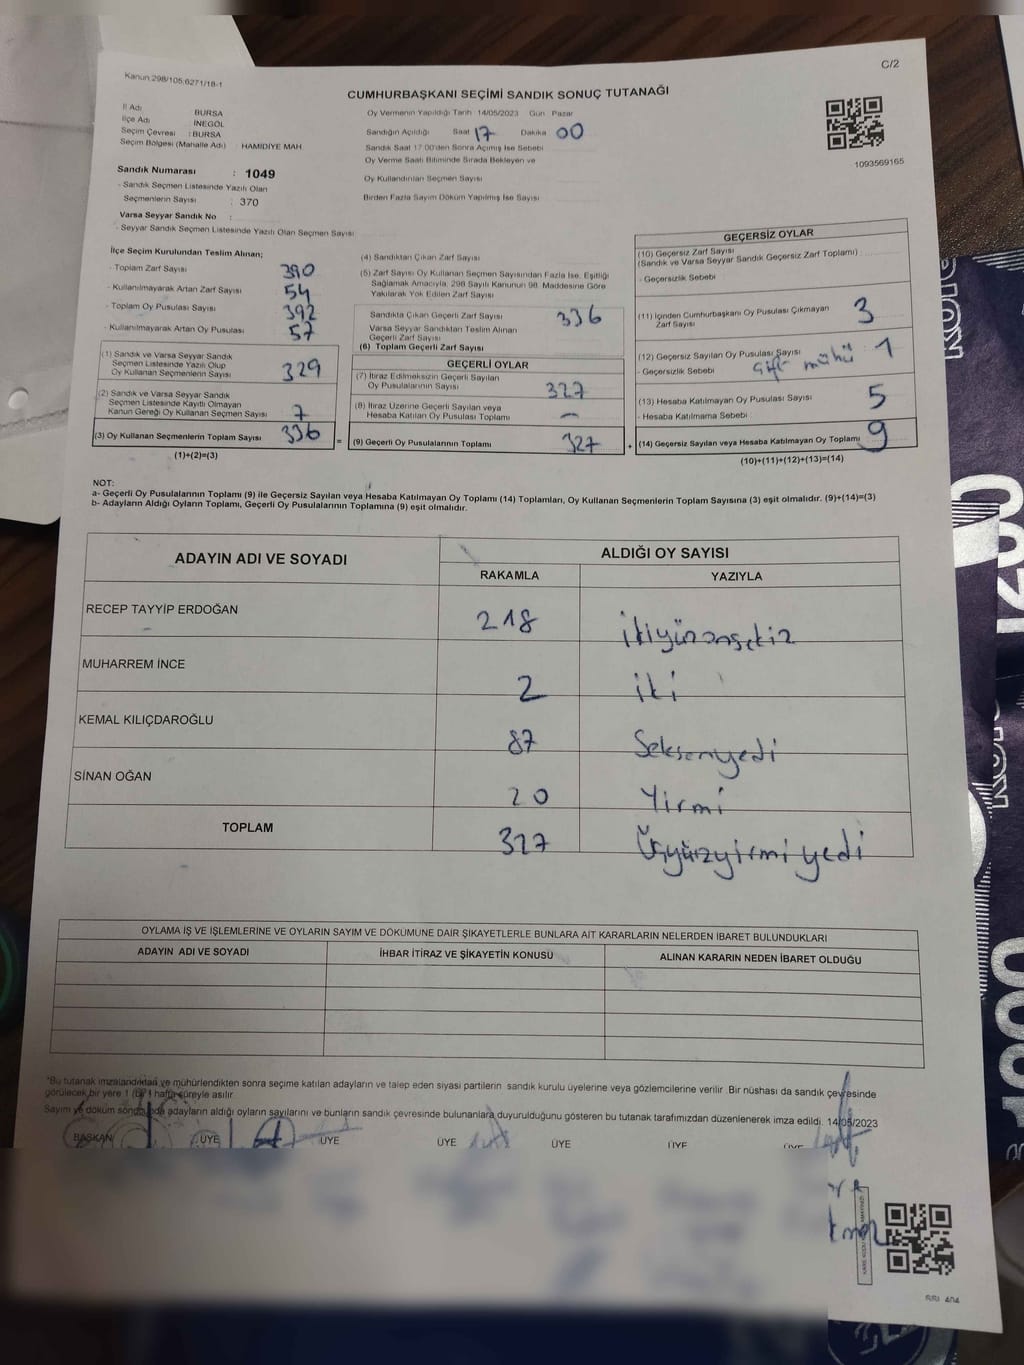 Kanun:298/105;6271/18-1
C/2
CUMHURBAŞKANI SEÇİMİ SANDIK SONUÇ TUTANAĞI
İl Adı : BURSA
İlçe Adı : İNEGÖL
Seçim Çevresi : BURSA
Seçim Bölgesi (Mahalle Adı) : HAMİDİYE MAH
Sandık Numarası : 1049
- Sandık Seçmen Listesinde Yazılı Olan
Seçmenlerin Sayısı : 370
Varsa Seyyar Sandık No :
- Seyyar Sandık Seçmen Listesinde Yazılı Olan Seçmen Sayısı :
Oy Vermenin Yapıldığı Tarih 14/05/2023 Gün Pazar
Sandığın Açıldığı Saat 17 Dakika 00
Sandık Saat 17:00'den Sonra Açımış İse Sebebi
Oy Verme Saati Bitiminde Sırada Bekleyen ve
Oy Kullandırılan Seçmen Sayısı
Birden Fazla Sayım Döküm Yapılmış İse Sayısı
1093569165
İlçe Seçim Kurulundan Teslim Alınan;
- Toplam Zarf Sayısı 390
- Kullanılmayarak Artan Zarf Sayısı 54
- Toplam Oy Pusulası Sayısı 392
- Kullanılmayarak Artan Oy Pusulası 57
(1) Sandık ve Varsa Seyyar Sandık
Seçmen Listesinde Yazılı Olup
Oy Kullanan Seçmenlerin Sayısı 329
(2) Sandık ve Varsa Seyyar Sandık
Seçmen Listesinde Kayıtlı Olmayan
Kanun Gereği Oy Kullanan Seçmen Sayısı 7
(3) Oy Kullanan Seçmenlerin Toplam Sayısı 336
(1)+(2)=(3)
(4) Sandıktan Çıkan Zarf Sayısı
(5) Zarf Sayısı Oy Kullanan Seçmen Sayısından Fazla İse, Eşitliği
Sağlamak Amacıyla, 298 Sayılı Kanunun 98. Maddesine Göre
Yakılarak Yok Edilen Zarf Sayısı
Sandıkta Çıkan Geçerli Zarf Sayısı 336
Varsa Seyyar Sandıktan Teslim Alınan
Geçerli Zarf Sayısı
(6) Toplam Geçerli Zarf Sayısı
GEÇERLİ OYLAR
(7) İtiraz Edilmeksizin Geçerli Sayılan
Oy Pusulalarının Sayısı 327
(8) İtiraz Üzerine Geçerli Sayılan veya
Hesaba Katılan Oy Pusulası Toplamı –
= (9) Geçerli Oy Pusulalarının Toplamı 327
GEÇERSİZ OYLAR
(10) Geçersiz Zarf Sayısı
(Sandık ve Varsa Seyyar Sandık Geçersiz Zarf Toplamı)
- Geçersizlik Sebebi
(11) İçinden Cumhurbaşkanı Oy Pusulası Çıkmayan
Zarf Sayısı 3
(12) Geçersiz Sayılan Oy Pusulası Sayısı 1
- Geçersizlik Sebebi Çift mühü
(13) Hesaba Katılmayan Oy Pusulası Sayısı 5
- Hesaba Katılmama Sebebi
+ (14) Geçersiz Sayılan veya Hesaba Katılmayan Oy Toplamı 9
(10)+(11)+(12)+(13)=(14)
NOT:
a- Geçerli Oy Pusulalarının Toplamı (9) ile Geçersiz Sayılan veya Hesaba Katılmayan Oy Toplamı (14) Toplamları, Oy Kullanan Seçmenlerin Toplam Sayısına (3) eşit olmalıdır. (9)+(14)=(3)
b- Adayların Aldığı Oyların Toplamı, Geçerli Oy Pusulalarının Toplamına (9) eşit olmalıdır.
ADAYIN ADI VE SOYADI
ALDIĞI OY SAYISI
RAKAMLA YAZIYLA
RECEP TAYYİP ERDOĞAN 218 ikiyüzonsekiz
MUHARREM İNCE 2 iki
KEMAL KILIÇDAROĞLU 87 Seksenyedi
SİNAN OĞAN 20 Yirmi
TOPLAM 327 Üçyüzyirmi yedi
OYLAMA İŞ VE İŞLEMLERİNE VE OYLARIN SAYIM VE DÖKÜMÜNE DAİR ŞİKAYETLERLE BUNLARA AİT KARARLARIN NELERDEN İBARET BULUNDUKLARI
ADAYIN ADI VE SOYADI İHBAR İTİRAZ VE ŞİKAYETİN KONUSU ALINAN KARARIN NEDEN İBARET OLDUĞU
*Bu tutanak imzalandıktan ve mühürlendikten sonra seçime katılan adayların ve talep eden siyasi partilerin sandık kurulu üyelerine veya gözlemcilerine verilir. Bir nüshası da sandık çevresinde
görülecek bir yere 1 (bir) hafta süreyle asılır.
Sayım ve döküm sonucunda adayların aldığı oyların sayılarını ve bunların sandık çevresinde bulunanlara duyurulduğunu gösteren bu tutanak tarafımızdan düzenlenerek imza edildi. 14/05/2023
BAŞKAN ÜYE ÜYE ÜYE ÜYE ÜYE ÜYE